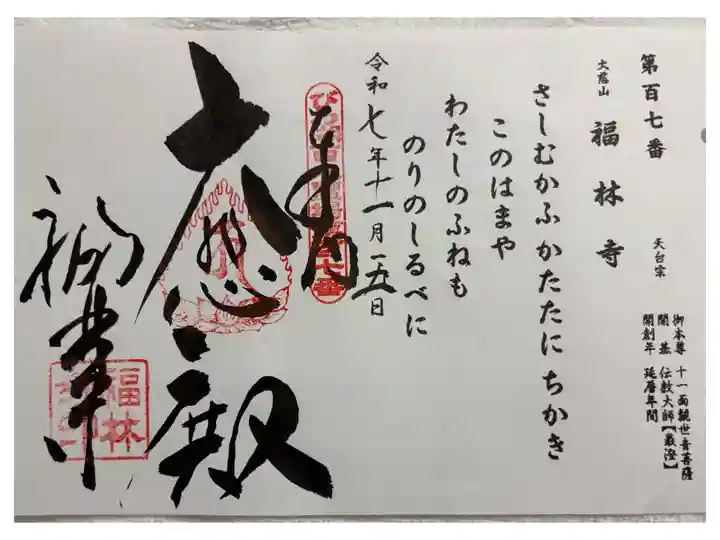 第百七番
大慈山 福林寺 天台宗
御本尊 十一面観世音菩薩
開基 伝教大師【最澄】
開創年 延暦年間
さしむかふ かたたに ちかき
このはまや
わたしのふねも
のりのしるべに
令和七年十一月一五日
奉拝
大悲殿
福林寺